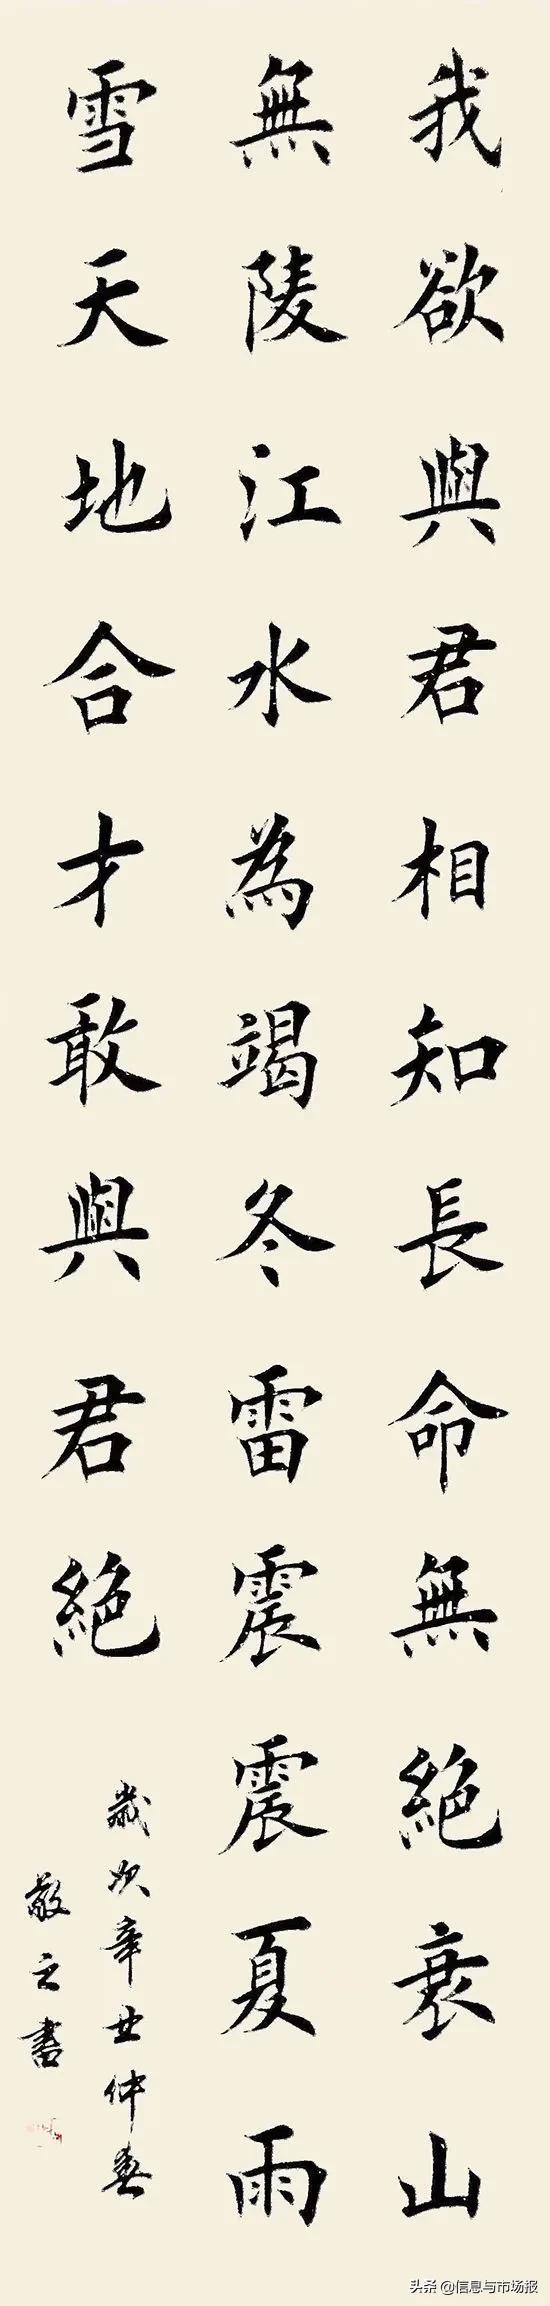 我欲與君相知長命無絕衰山
無陵江水為竭冬雷震震夏雨
雪天地合才敢與君絕
歲次辛丑仲春
敬之書
头条 @信息与市场报